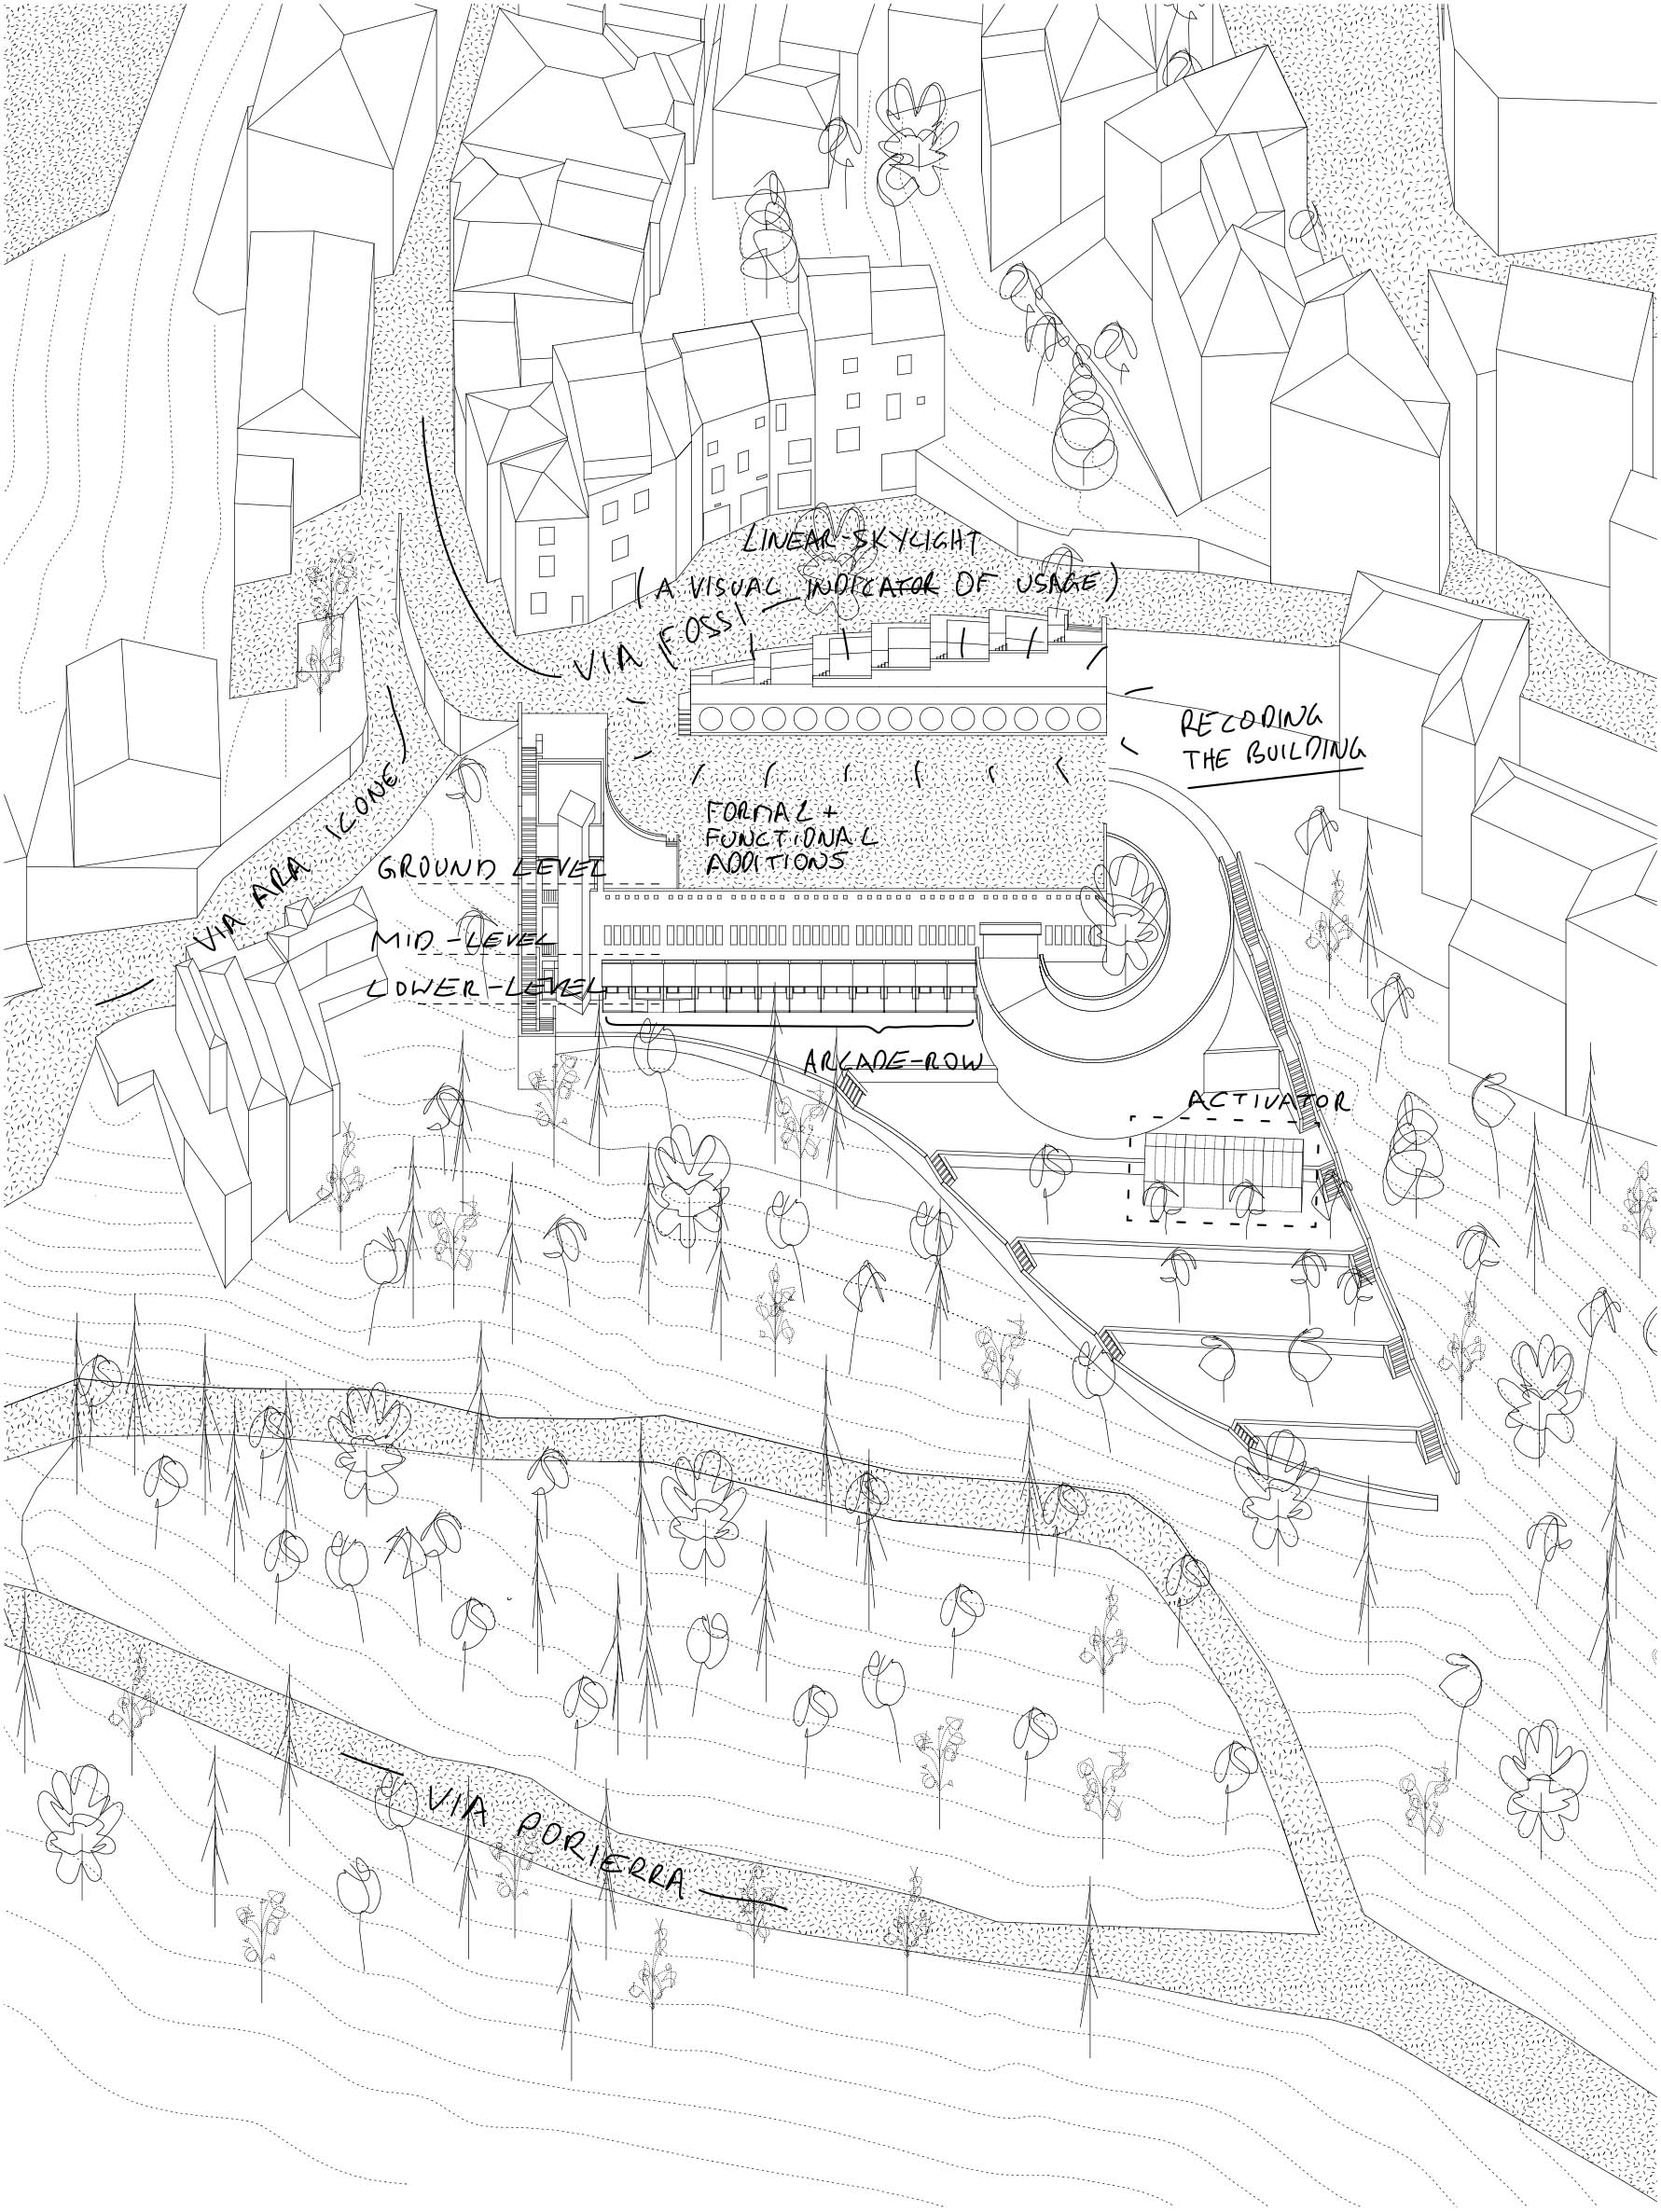 LINEAR-SKYLIGHT
(A VISUAL INDICATOR OF USAGE)
VIA FOSSI
RECODING
THE BUILDING
VIA ARA ICONE
FORMAL +
FUNCTIONAL
ADDITIONS
GROUND LEVEL
MID-LEVEL
LOWER-LEVEL
ARCADE-ROW
ACTIVATOR
VIA PORIERRA